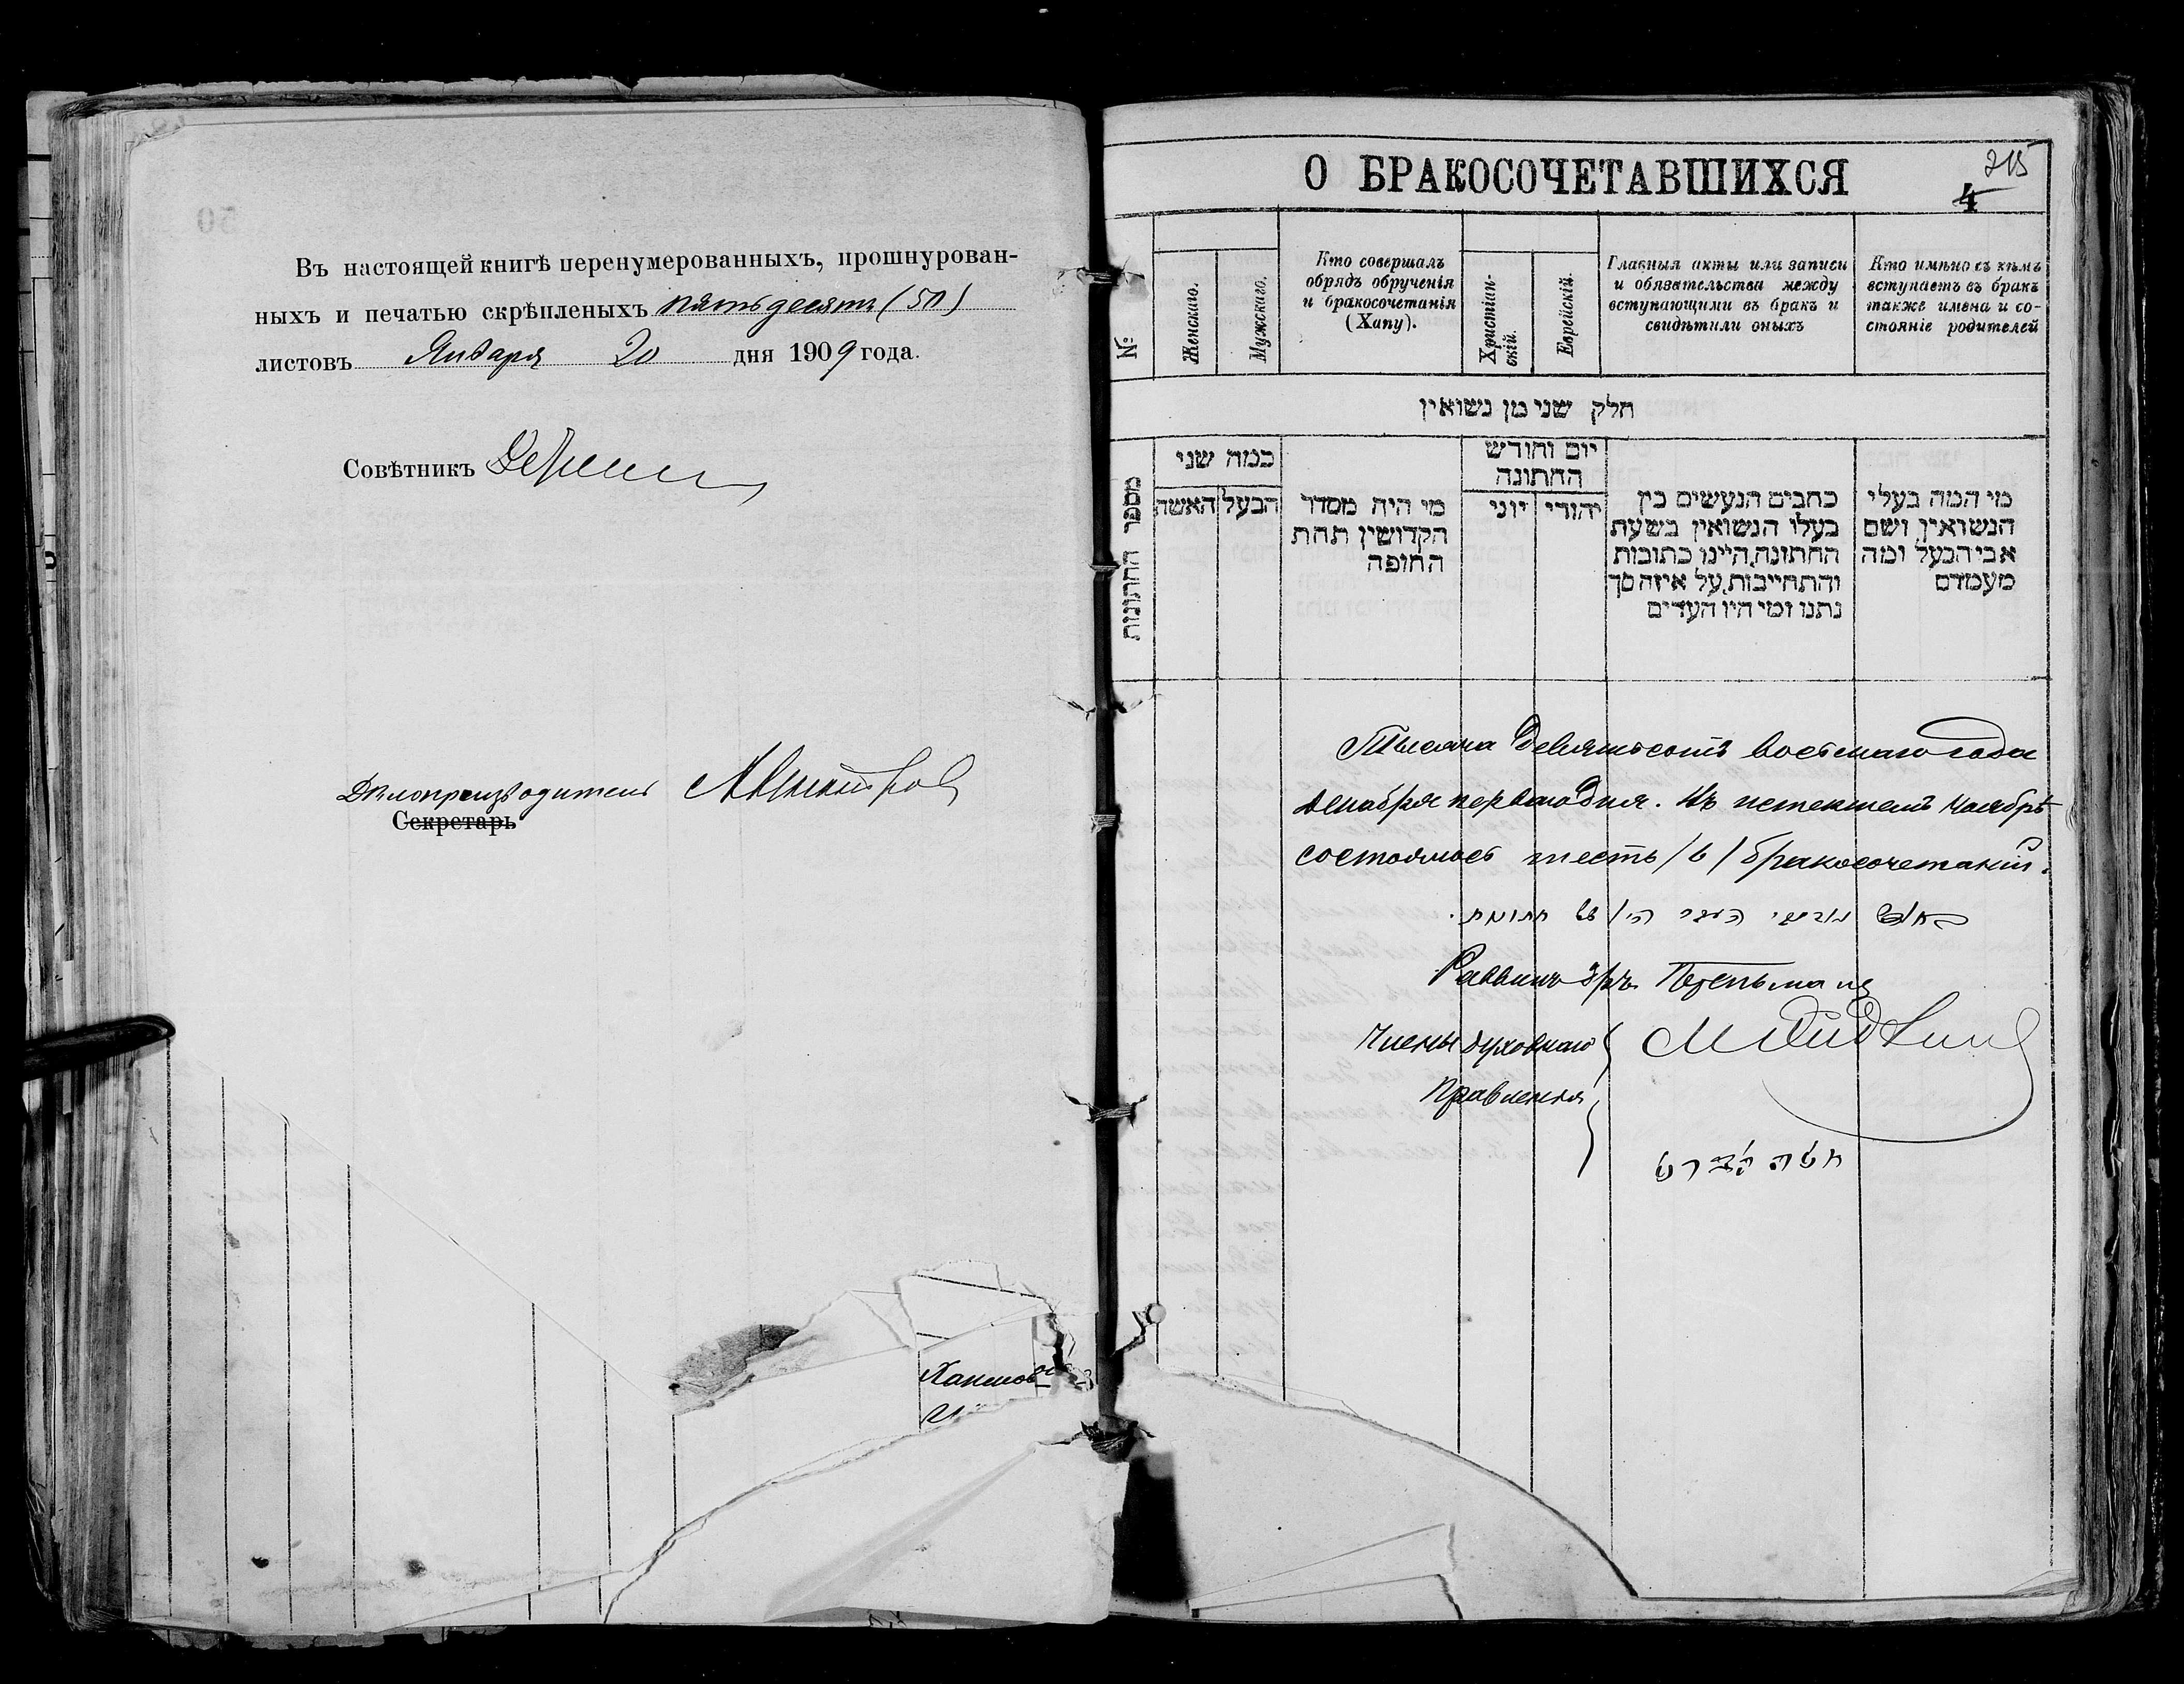 Въ настоящей книгѣ перенумерованныхъ, прошнурован-
ныхъ и печатью скрѣпленыхъ пятьдесятъ (50)
листовъ Января 20 дня 1909 года.
Совѣтникъ
Дѣлопроизводитель
Секретарь
Хаимов
О БРАКОСОЧЕТАВШИХСЯ
215
4
№
Женскаго.
Мужскаго.
Кто совершалъ
обрядъ обрученія
и бракосочетанія
(Хапу).
Христіан-
скій.
Еврейскій.
Главныя акты или записи
и обязательства между
вступающими въ бракъ и
свидѣтили оныхъ
Кто имѣно съ кѣмъ
вступаетъ въ бракъ
также имена и со-
стояніе родителей
חלק שני מן נשואין
מספר החתונות
כמה שני
האשה
הבעל
מי היה מסדר
הקדושין תחת
החופה
יום וחודש
החתונה
יוני
יהודי
כתבים הנעשים בין
בעלו הנשואין בשעת
החתונה, היינו כתובות
והתחייבות, על איזה סך
נתנו ומי היו העדים
מי המה בעלי
הנשואין, ושם
אבי הבעל ומה
מעמדם
Тысяча девятьсотъ восьмаго года
декабря перваго дня. Въ истекшемъ ноябрѣ
состоялось шесть /6/ бракосочетаній.
Раввинъ
Члены духовнаго
Правленія